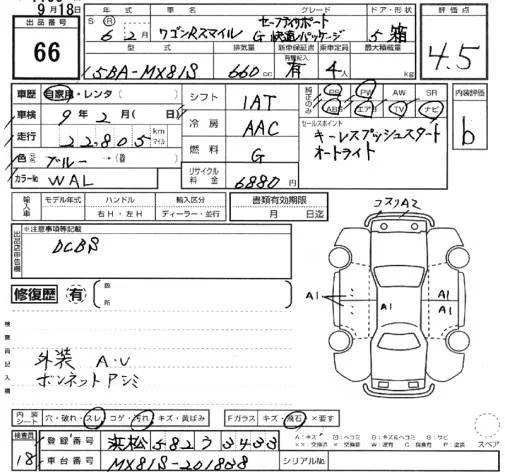 9月18日
出品番号 年 車名 グレード ドア・形状 評価点
66
S Ⓡ 6年2月 ワゴンRスマイル セーフティサポート
G 快適パッケージ 5 箱 4.5
型式 排気量 新車保証書 乗車定員 最大積載量
5BA-MX81S 660cc 有 4人 kg
車歴 自家用・レンタ シフト IAT 純正のみ PS PW AW SR 内装評価
ABS エアB TV ナビ
車検 9年2月(日) 冷房 AAC セールスポイント b
走行 22,805 km マイル キーレスプッシュスタート
オートライト
色 ブルー→ 燃料 G
カラーNo WAL リサイクル料金 6880円
輸入車 モデル年式 ハンドル 輸入区分 書類有効期限
右H・左H ディーラー・並行 月 日迄
出品店申告欄 ※注意事項等記載
DCBS
コスリA2
修復歴 有 箇所
A1 A1 A1
A1
検査員記入欄
外装 A・U
ボンネットアシミ
内装シート 穴・破れ・スレ コゲ・汚れ・キズ・黄ばみ Fガラス キズ・飛石・×要す
検査員 登録番号 浜松582う3433
18 車台番号 MX81S-201838 シリアルNo
A:キズ U:ヘコミ B:キズ&ヘコミ S:サビ
××:交換済 ×:要交換 W:波有 C:腐食有 P:塗装
スペア